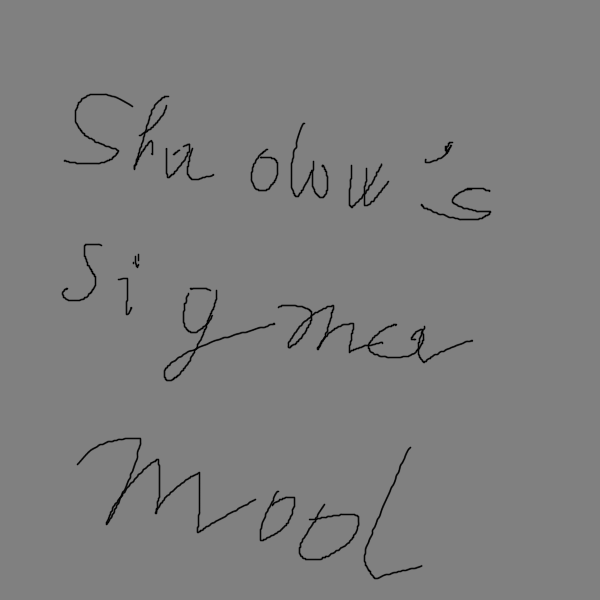 Shadow's
Sigma
Mood